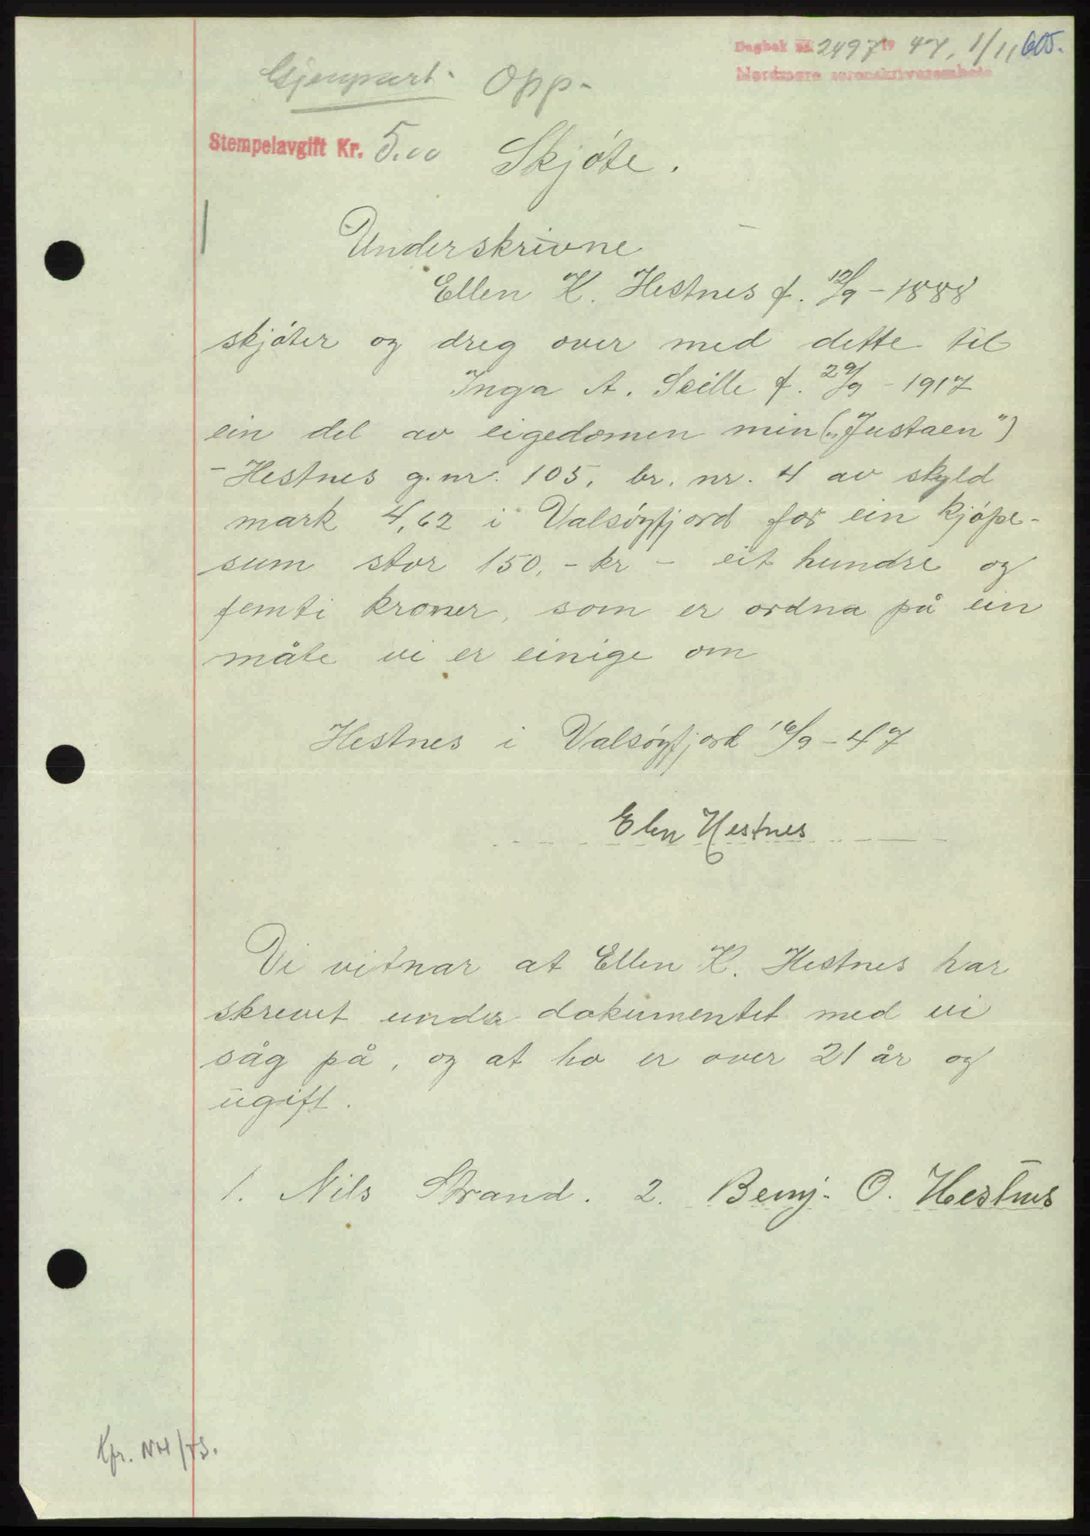 Dagbok nr. 2497 19 47, 1/11 605.
Nordmøre sorenskriverembete
Gjenpart. Opp-
Stempelavgift Kr. 5.00 Skjøte.
Underskrivne
Ellen K. Hestnes f. 12/9 - 1888
skjøter og dreg over med dette til
Inga A. f. 29/9 - 1917
ein del av eigedomen min („Justaen")
- Hestnes g.nr. 105, br. nr. 4 av skyld
mark 4,62 i Valsøyfjord for ein kjøpe-
sum stor 150,- kr - eit hundre og
femti kroner, som er ordna på ein
måte vi er einige om
Hestnes i Valsøyfjord 16/9 - 47
Elen Hestnes
Vi vitnar at Ellen K. Hestnes har
skrevet under dokumentet med vi
såg på, og at ho er over 21 år og
ugift.
1. Nils Strand. 2. Benj. O. Hestnes
Kfr. NH/TS.